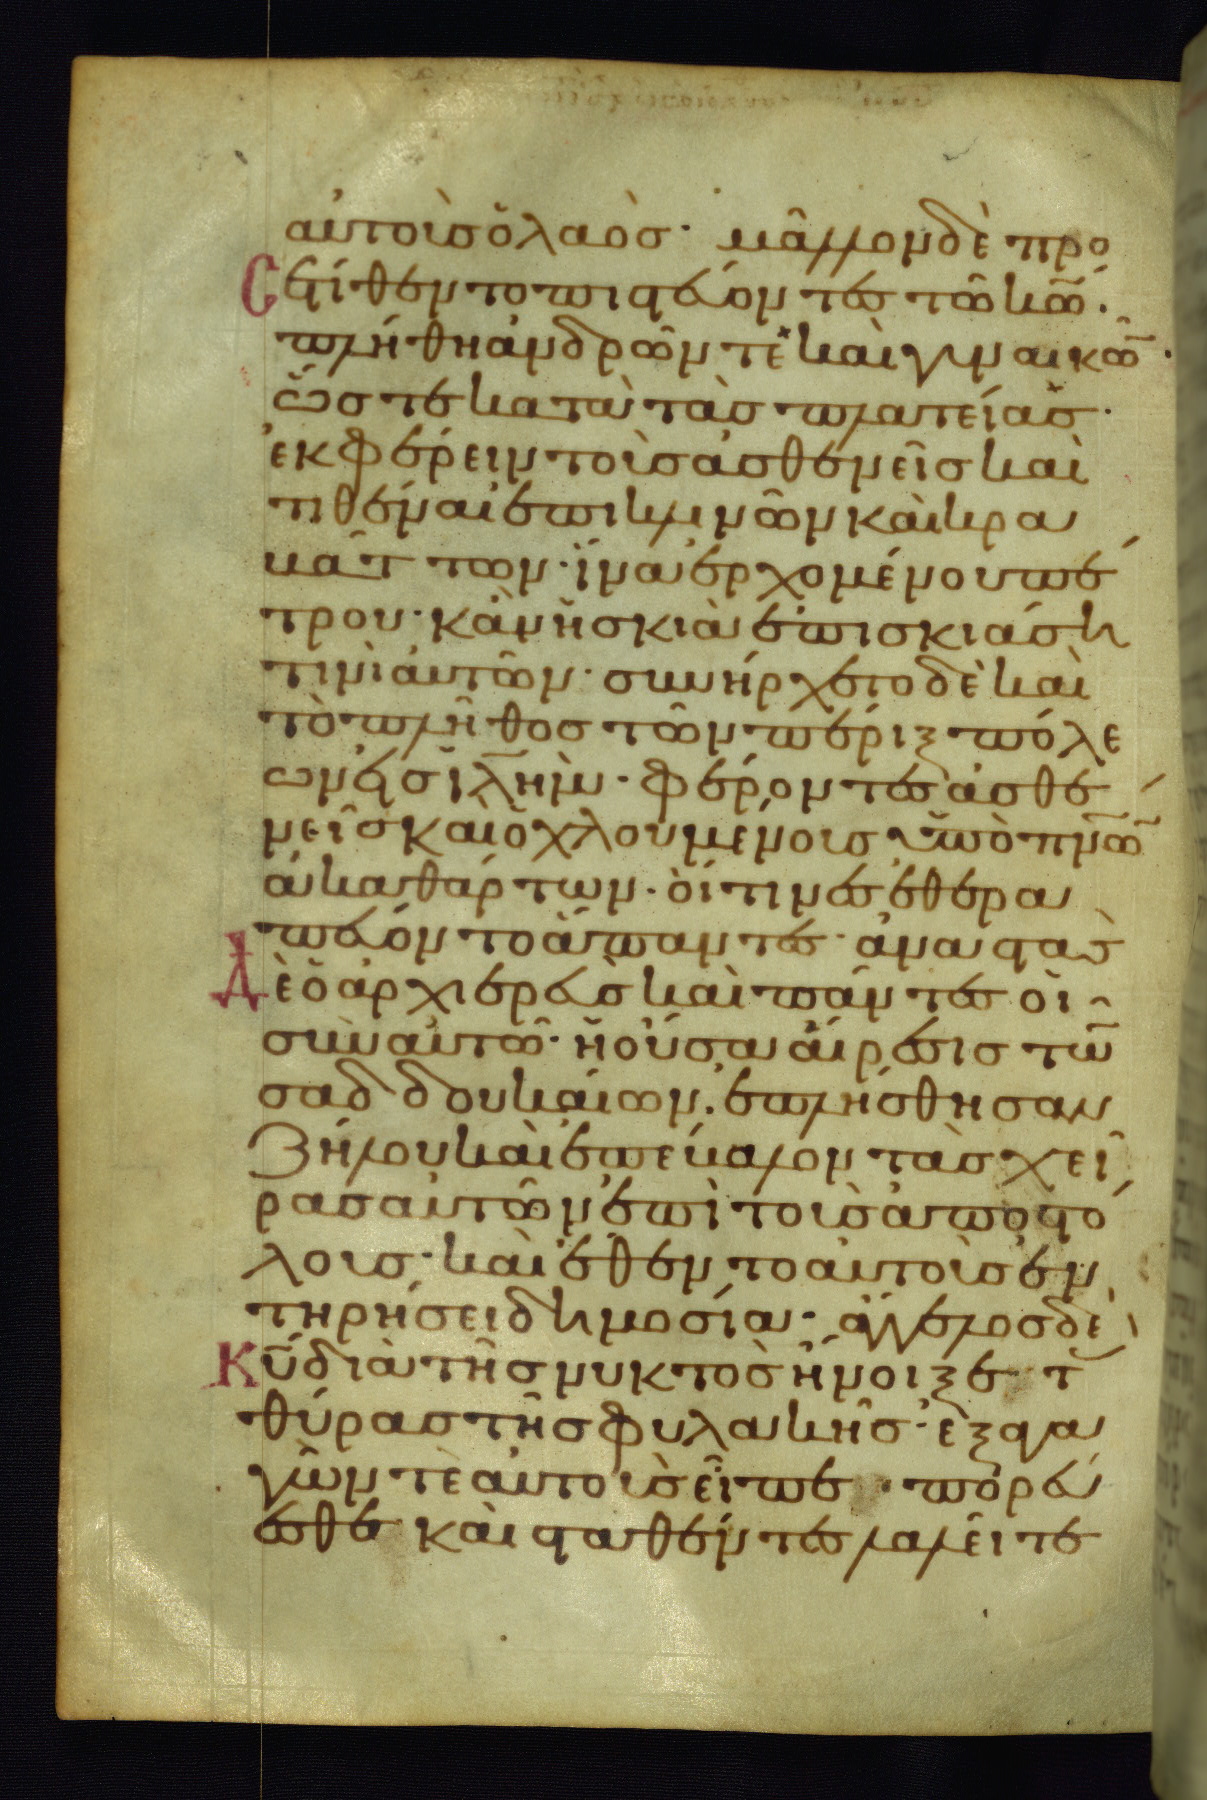 αὐτοὺσ ὁ λαὸσ· μᾶλλον δὲ προ
Σετίθεντο πιστεύοντεσ τῶ κῶ.
πλήθη ἀνδρῶν τὲ καὶ γυναικῶ̅·
ὥστε κατὰ τὰσ πλατείασ·
ἐκφέρειν τοὺσ ἀσθενεῖσ καὶ
τιθέναι ἐπι κλινῶν καὶ κρα
βάττων· ἵνα ἐρχομένου πέ
τρου· κἂν ἡ σκιὰ ἐπισκιάση
τινὶ αὐτῶν· συνήρχετο δὲ καὶ
τὸ πλῆθοσ τῶν πέριξ πόλε
ων εἰσ ϊλη̅μ· φέροντεσ ἀσθε
νεῖσ καὶ ὀχλουμένουσ ὑπὸ πνω̅
ἀκαθάρτων· οἵτινεσ ἐθερα
πεύοντο ἅπαντεσ· ἀναστὰσ
Δὲ ὁ ἀρχιερεὺσ καὶ πάντεσ οἱ
σὺν αὐτῶ· ἡ οὖσα αἵρεσισ τῶ̅
σαδδουκαίων· ἐπλήσθησαν
Ζήλου καὶ ἐπέβαλον τὰσ χεῖ
ρασ αὐτῶν ἐπὶ τοὺσ ἀποστό
λουσ· καὶ ἔθεντο αὐτοὺσ ἐν
τηρήσει δημοσία· ἄγγελοσ δὲ
Κῦ διὰ τῆσ νυκτὸσ ἤνοιξε τ̅
θύρασ τῆσ φυλακῆσ· ἐξαγα
γών τὲ αὐτοὺσ εἶπε· πορεύ
εσθε καὶ σταθέντεσ λαλεῖτε